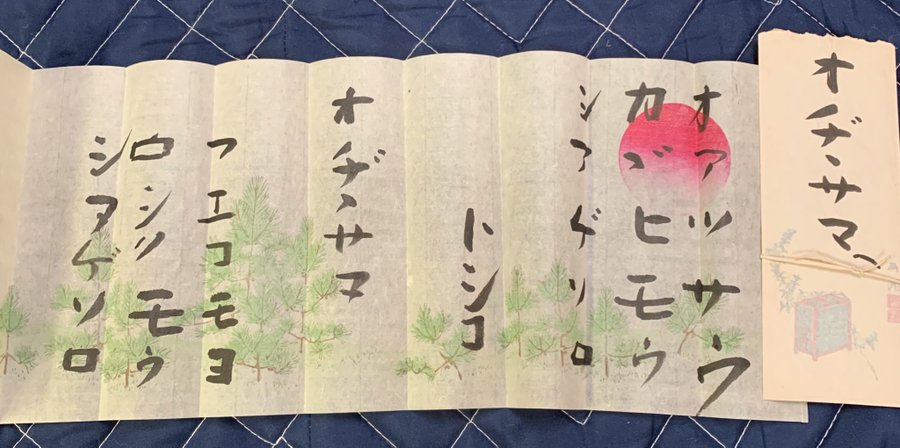 オヂヽサマヘ
オアツサヽウ
カヾヒモウ
シアゲソロ
トシコ
オヂヽサマ
フエコモヨ
ロシクモウ
シアゲソロ